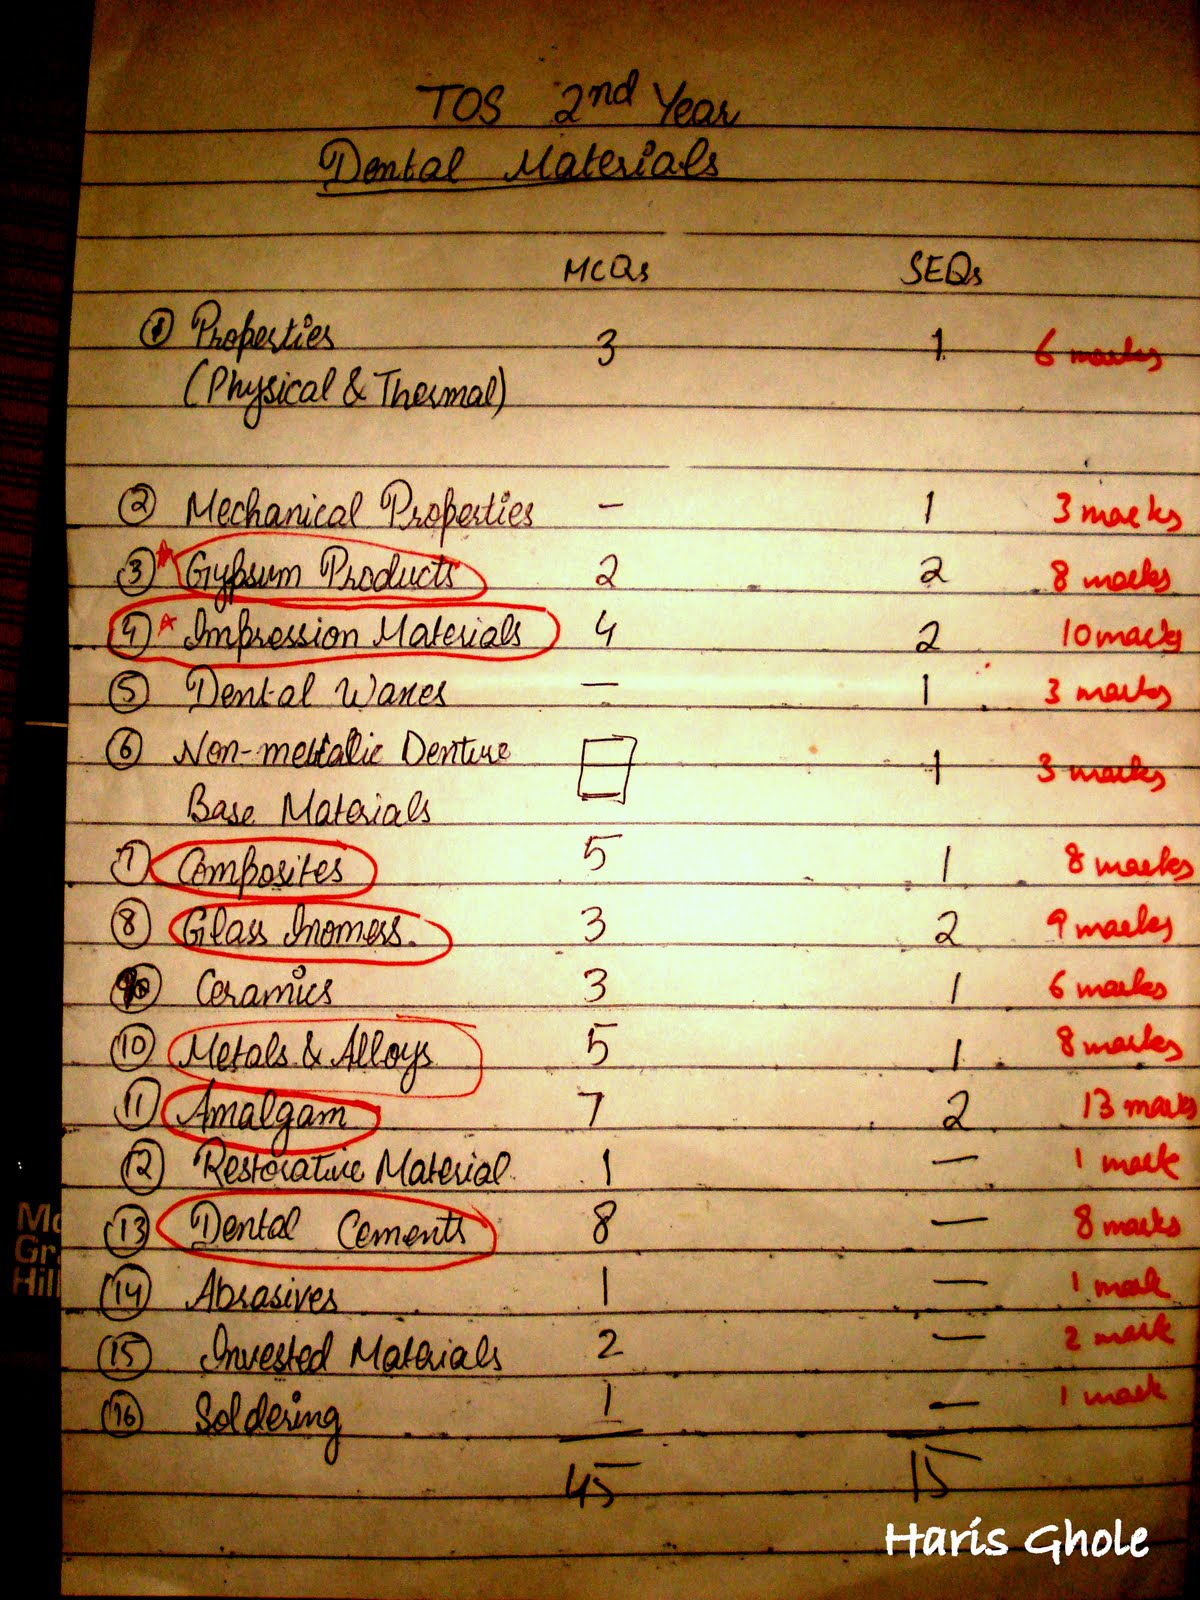 TOS 2nd Year
Dental Materials
MCQs SEQs
① Properties 3 1 6 marks
(Physical & Thermal)
② Mechanical Properties — 1 3 marks
③ Gypsum Products 2 2 8 marks
④ Impression Materials 4 2 10 marks
⑤ Dental Waxes — 1 3 marks
⑥ Non-metallic Denture 1 3 marks
Base Materials
⑦ Composites 5 1 8 marks
⑧ Glass Inomers. 3 2 9 marks
Ceramics 3 1 6 marks
⑩ Metals & Alloys 5 1 8 marks
⑪ Amalgam 7 2 13 marks
⑫ Restorative Material 1 — 1 mark
⑬ Dental Cements 8 — 8 marks
⑭ Abrasives 1 — 1 mark
⑮ Invested Materials 2 — 2 mark
⑯ Soldering 1 — 1 mark
45 15
Haris Ghole
Mc
Gr
Hill